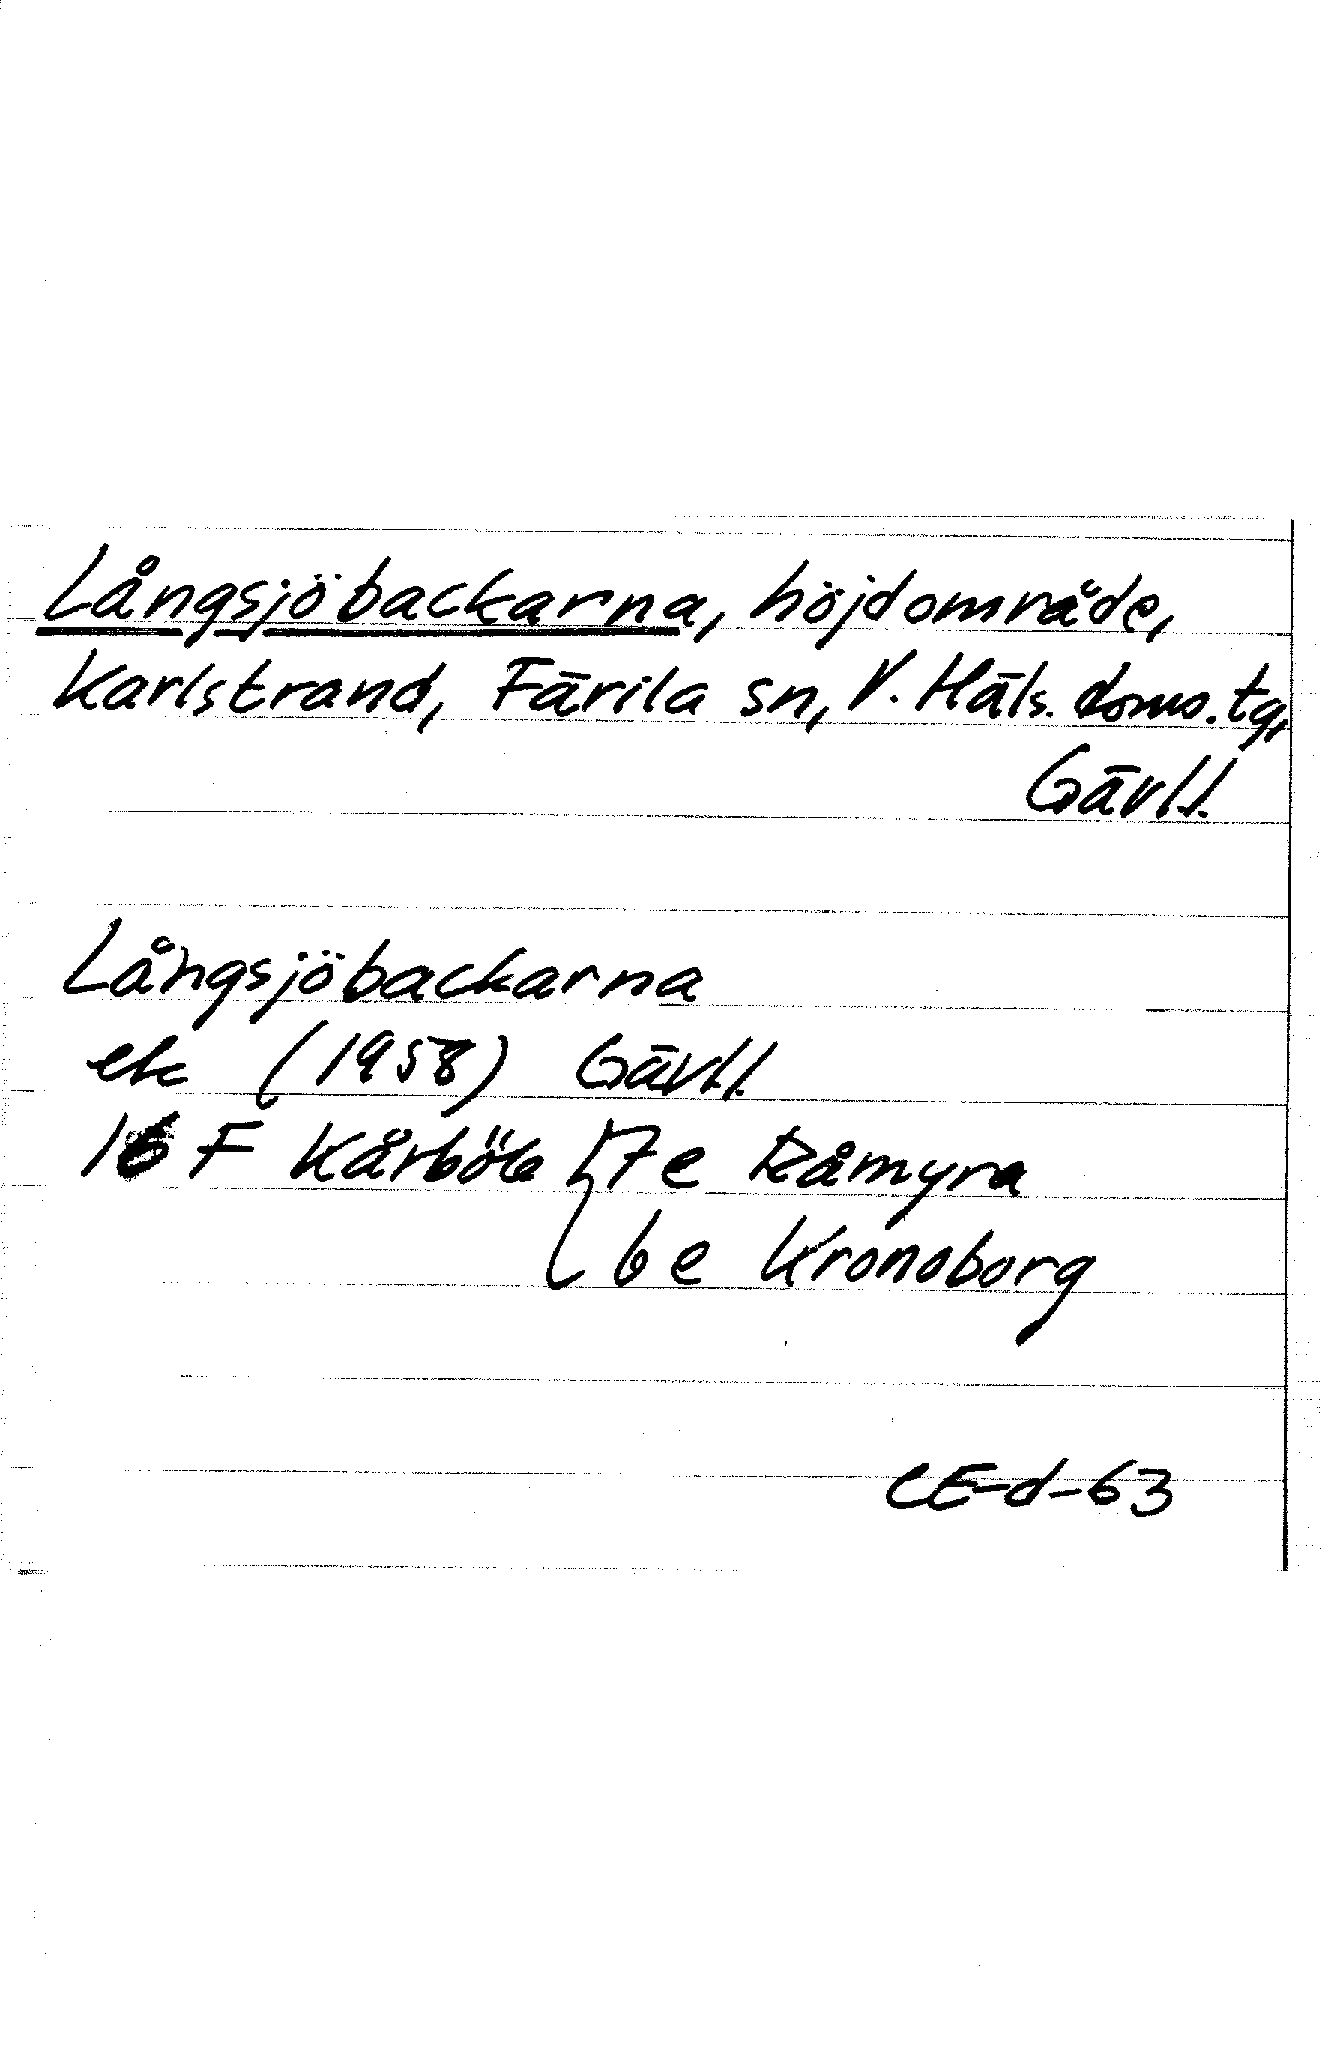 Långsjöbackarna, höjdområde,
Karlstrand, Färila sn, V. Häls. doms. tg,
Gävl.l.
Långsjöbackarna
ek (1958) Gävl.l.
16 F Kårböle { 7 e Råmyra
6 e Kronoborg
CE-d-63